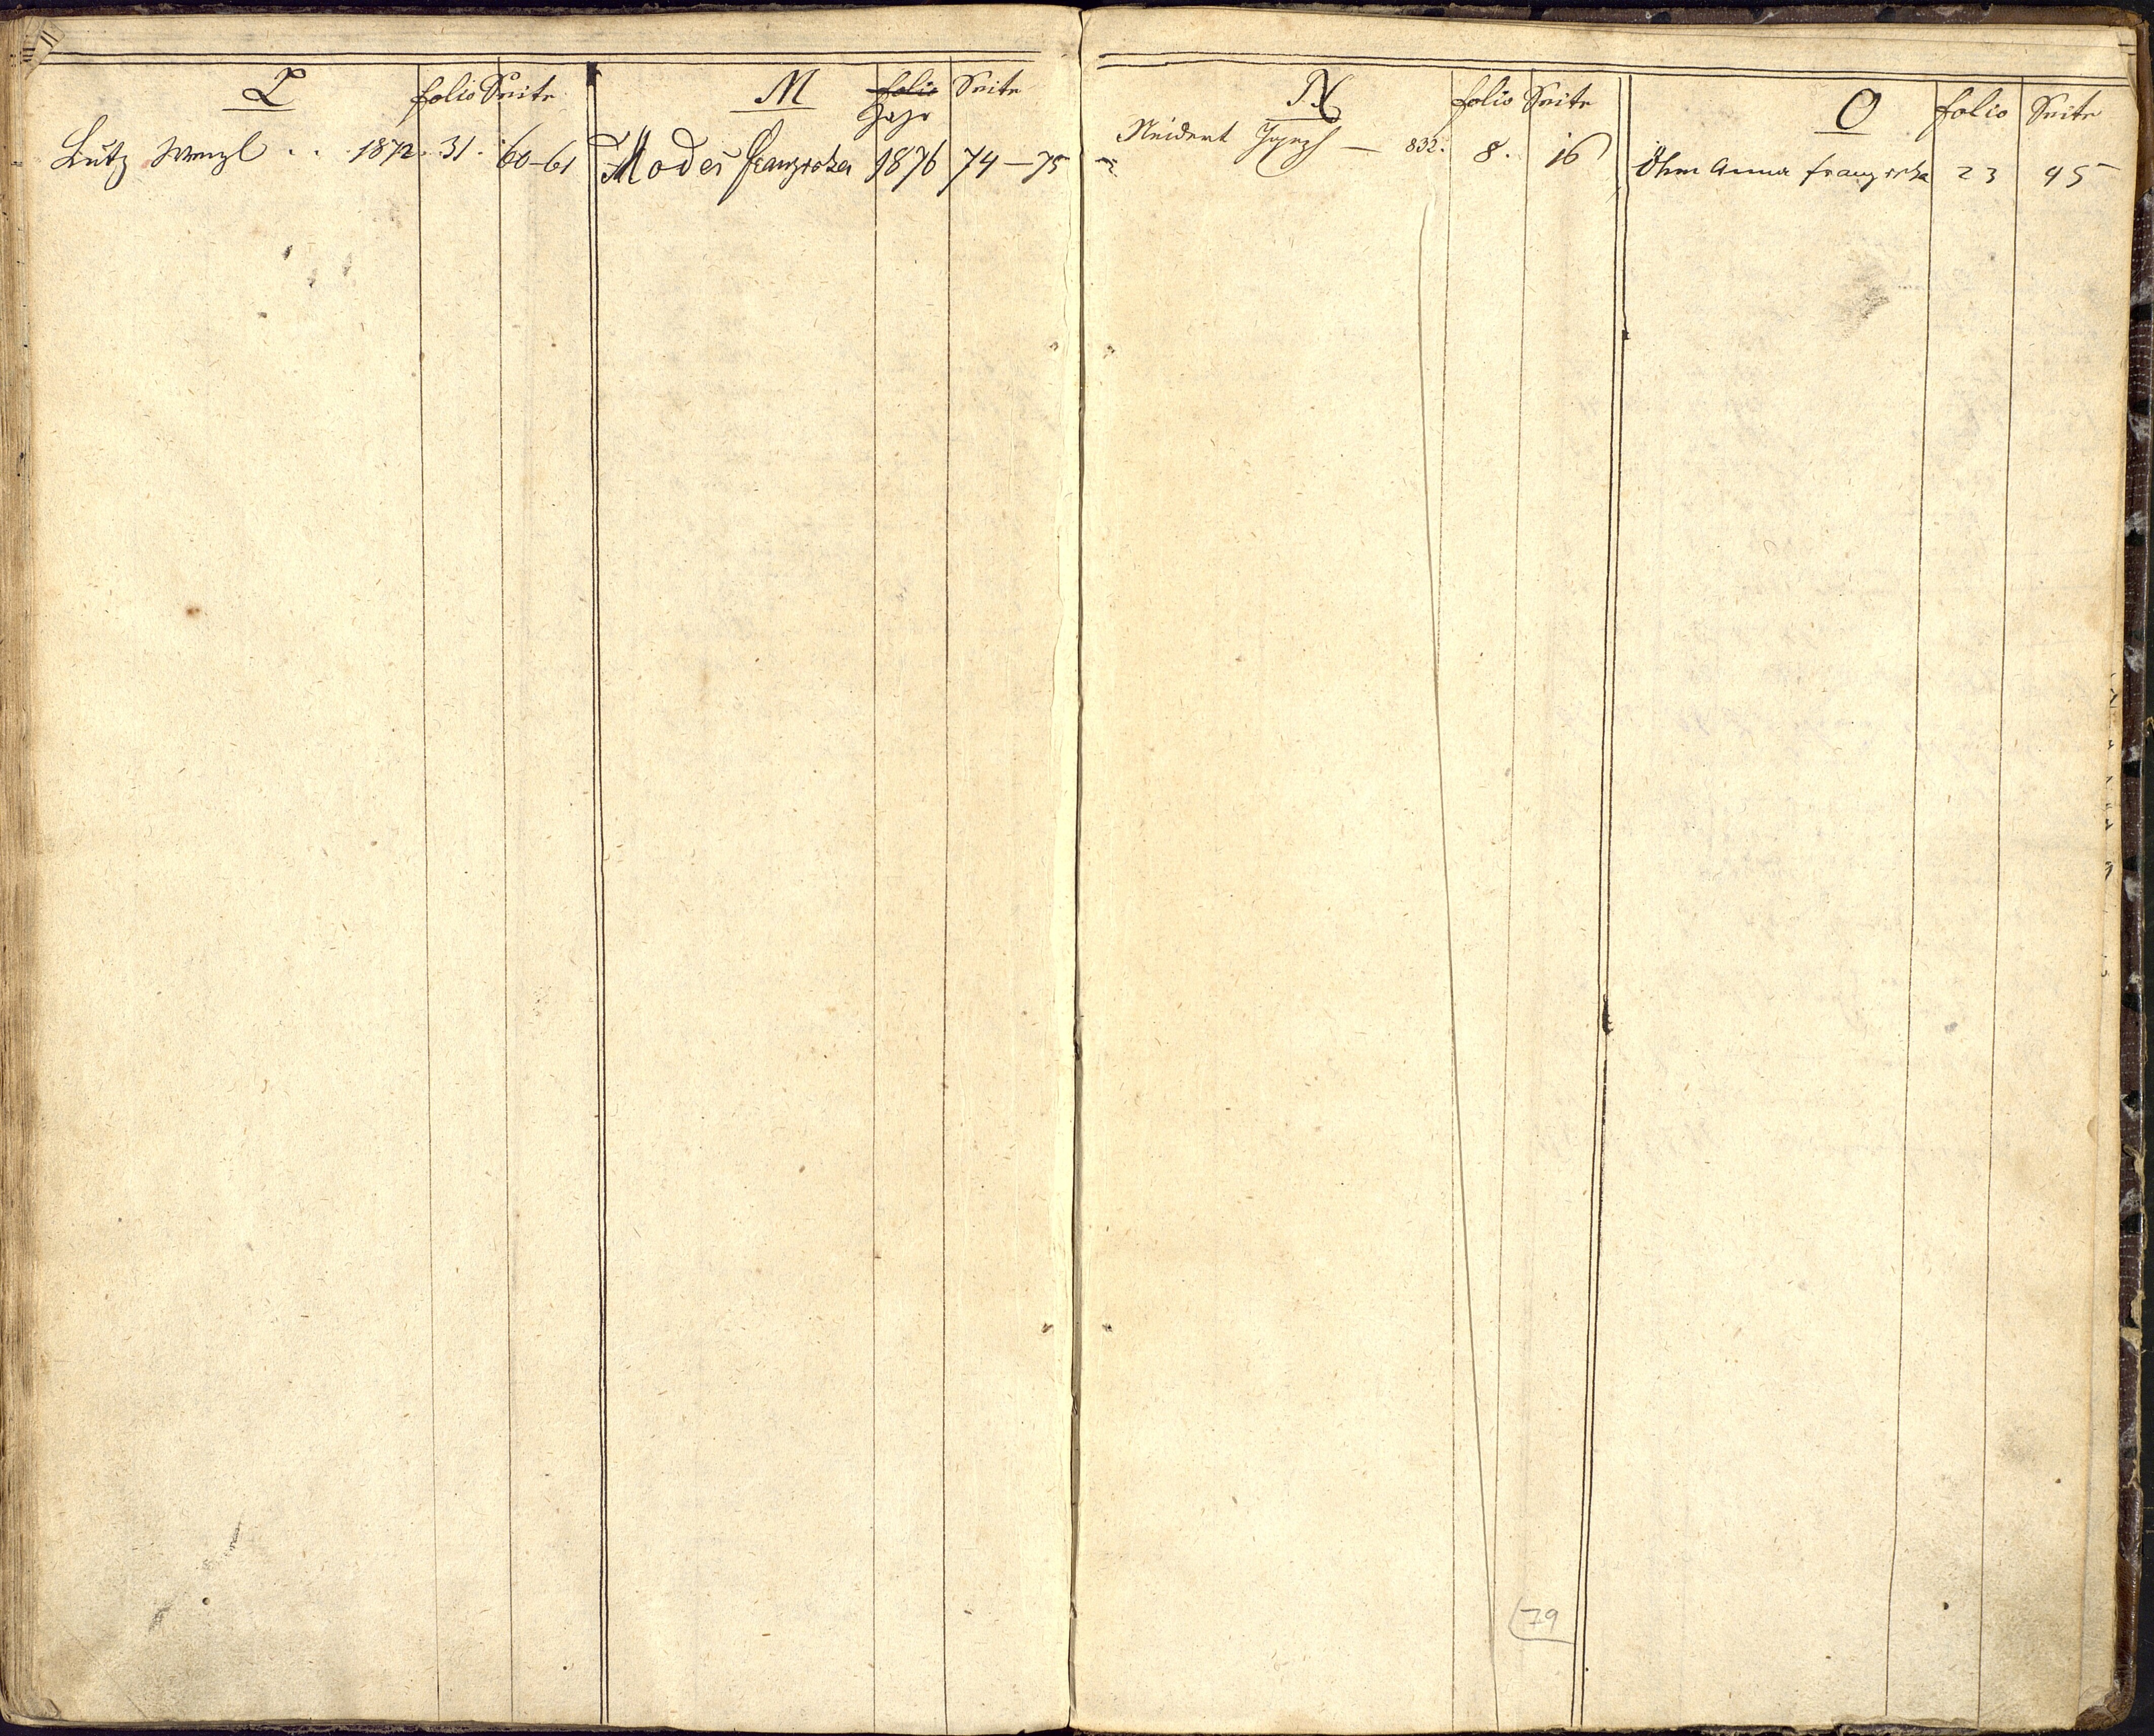 L folio Seite
Lutz Wenzl . . 1872. 31. 60-61
M folio Seite
Jahr
Modes Franziska 1876 74-75
N folio Seite
Neidert Joseph — 832. 8. 16
O folio Seite
Öhm Anna Franziska 23 45
79